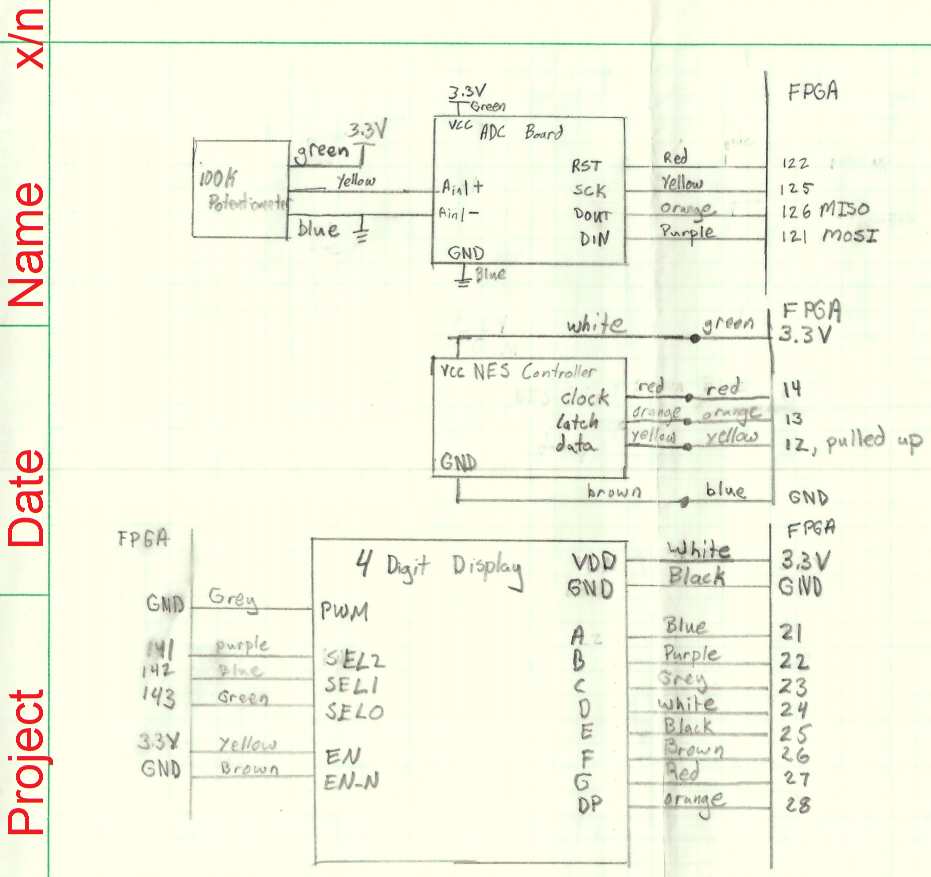 x/n
Name
Date
Project
FPGA
3.3V
Green
VCC ADC Board
3.3V
green
100K
Potentiometer
Yellow
blue
Ain1+
Ain1-
GND
Blue
RST Red 122
SCK Yellow 125
DOUT orange 126 MISO
DIN Purple 121 MOSI
FPGA
white green 3.3V
VCC NES Controller
clock red red 14
latch orange orange 13
data yellow yellow 12, pulled up
GND
brown blue GND
FPGA
FPGA
4 Digit Display
VDD White 3.3V
GND Black GND
GND Grey PWM
141 purple SEL2
142 Blue SEL1
143 Green SEL0
3.3V Yellow EN
GND Brown EN-N
A Blue 21
B Purple 22
C Grey 23
D white 24
E Black 25
F Brown 26
G Red 27
DP orange 28